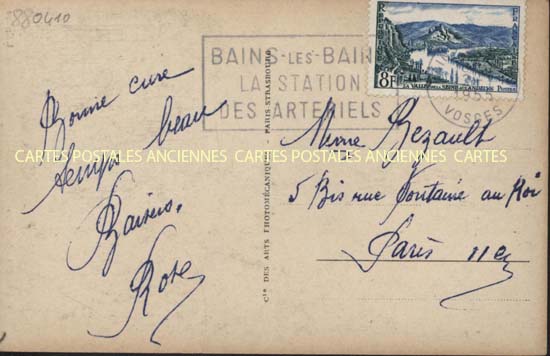 880410
BAINS-LES-BAIN
LA STATION
DES ARTERIELS
REPUBLIQUE
FRANÇAISE
8F
LA VALLÉE DE LA SEINE AUX ANDELYS
VOSGES
Bonne cure
temps beau
Baisers.
Rose
Mme Bezault
5 Bis rue Fontaine au Roi
Paris 11e
CARTES POSTALES ANCIENNES CARTES POSTALES ANCIENNES CARTES
Cie DES ARTS PHOTOMÉCANIQUES - PARIS-STRASBOURG